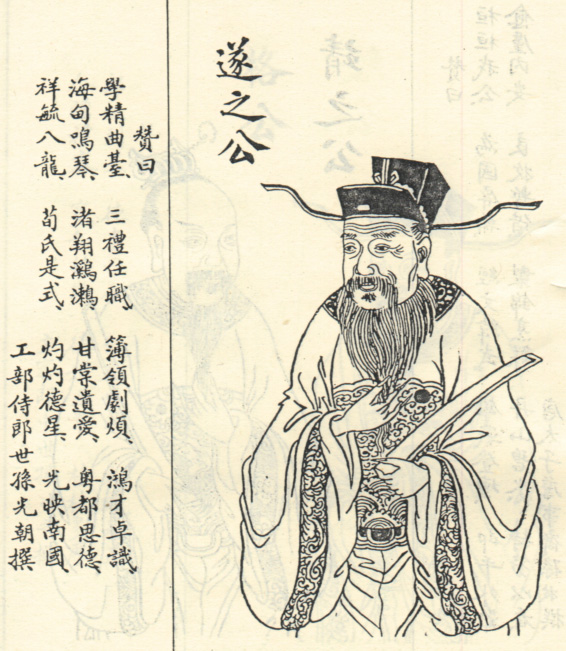 遂之公
贊曰
學精曲臺、三禮任職、簿領劇煩、鴻才卓識、
海甸鳴琴、渚翔鸂、甘棠遺愛、粤都思德、
祥毓八龍、荀氏是式、灼灼德星、光映南國、
工部侍郎世孫光朝撰